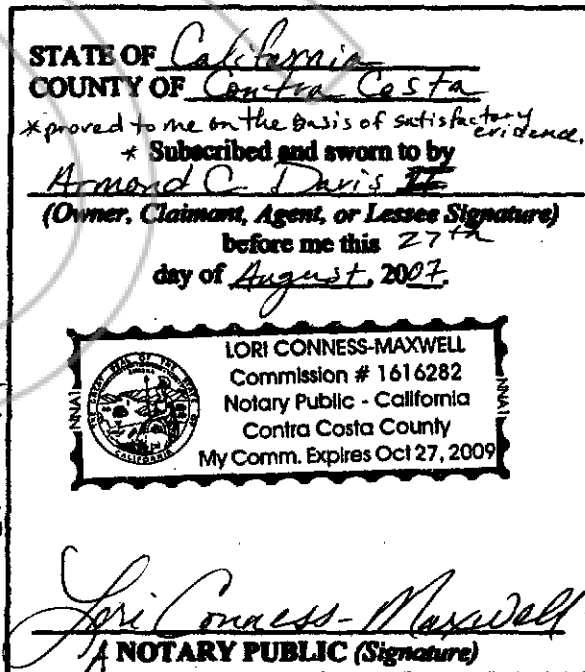 STATE OF California
COUNTY OF Contra Costa
*proved to me on the basis of satisfactory evidence.
* Subscribed and sworn to by
Armond C. Davis II
(Owner, Claimant, Agent, or Lessee Signature)
before me this 27th
day of August, 2007.
LORI CONNESS-MAXWELL
Commission # 1616282
Notary Public - California
Contra Costa County
My Comm. Expires Oct 27, 2009
NNA1
NNA1
THE GREAT SEAL OF THE STATE OF CALIFORNIA
Lori Conness-Maxwell
NOTARY PUBLIC (Signature)